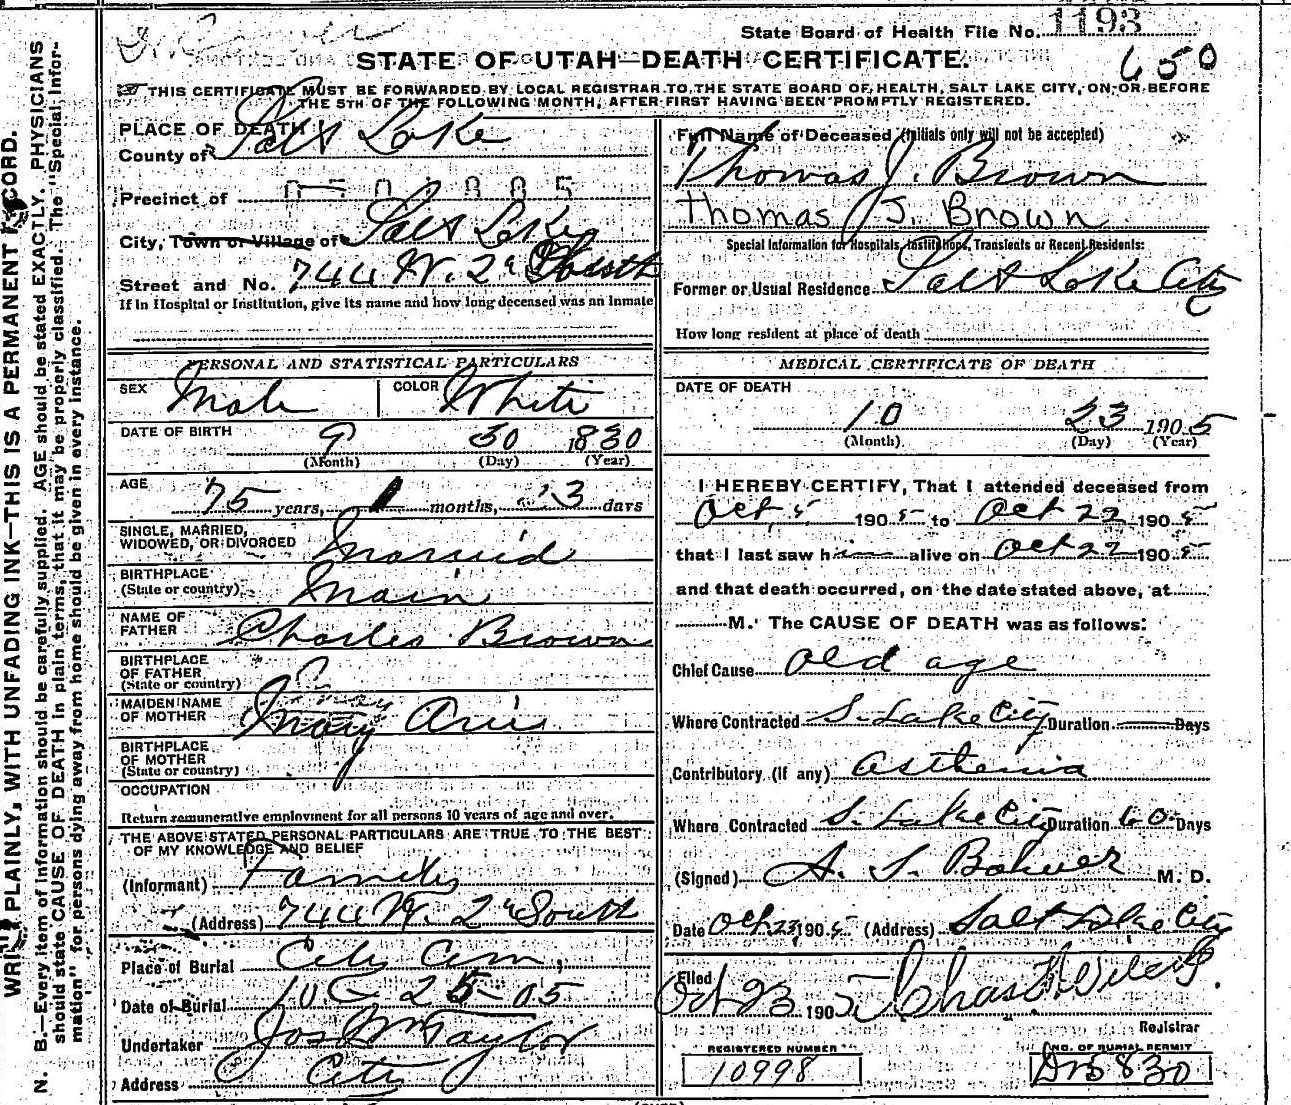 State Board of Health File No. 1193
STATE OF UTAH—DEATH CERTIFICATE.
650
THIS CERTIFICATE MUST BE FORWARDED BY LOCAL REGISTRAR TO THE STATE BOARD OF HEALTH, SALT LAKE CITY, ON OR BEFORE
THE 5TH OF THE FOLLOWING MONTH, AFTER FIRST HAVING BEEN PROMPTLY REGISTERED.
WRITE PLAINLY, WITH UNFADING INK—THIS IS A PERMANENT RECORD.
N. B.—Every item of information should be carefully supplied. AGE should be stated EXACTLY. PHYSICIANS
should state CAUSE OF DEATH in plain terms, that it may be properly classified. The "Special Infor-
mation" for persons dying away from home should be given in every instance.
PLACE OF DEATH
County of Salt Lake
Precinct of
City, Town or Village of Salt Lake
Street and No. 744 W. 2d South
If in Hospital or Institution, give its name and how long deceased was an inmate
PERSONAL AND STATISTICAL PARTICULARS
SEX Male COLOR White
DATE OF BIRTH 9 30 1830
(Month) (Day) (Year)
AGE 75 years, months, 3 days
SINGLE, MARRIED,
WIDOWED, OR DIVORCED Married
BIRTHPLACE
(State or country) Main
NAME OF
FATHER Charles Brown
BIRTHPLACE
OF FATHER
(State or country) ?
MAIDEN NAME
OF MOTHER Mary
BIRTHPLACE
OF MOTHER
(State or country)
OCCUPATION
Return remunerative employment for all persons 10 years of age and over.
THE ABOVE STATED PERSONAL PARTICULARS ARE TRUE TO THE BEST
OF MY KNOWLEDGE AND BELIEF
(Informant) Family
(Address) 744 W. 2d South
Place of Burial City Cem,
Date of Burial 10 25-05
Undertaker Jos Wm Taylor
Address City
Full Name of Deceased (initials only will not be accepted)
Thomas J. Brown
Thomas J. Brown
Special Information for Hospitals, Institutions, Transients or Recent Residents:
Former or Usual Residence Salt Lake City
How long resident at place of death
MEDICAL CERTIFICATE OF DEATH
DATE OF DEATH
10 23 1905
(Month) (Day) (Year)
I HEREBY CERTIFY, That I attended deceased from
Oct, 5 1905 to Oct 22 1905
that I last saw him alive on Oct 22 1905
and that death occurred, on the date stated above, at
M. The CAUSE OF DEATH was as follows:
Chief Cause Old age
Where Contracted S. Lake City Duration Days
Contributory (if any) Asthenia
Where Contracted S. Lake City Duration 60 Days
(Signed) A. S. Bower M. D.
Date Oct 23, 1905 (Address) Salt Lake City
Filed
Oct 23 1905 Chas. F. Wilcox.
Registrar
REGISTERED NUMBER
10998
NO. OF BURIAL PERMIT
5830